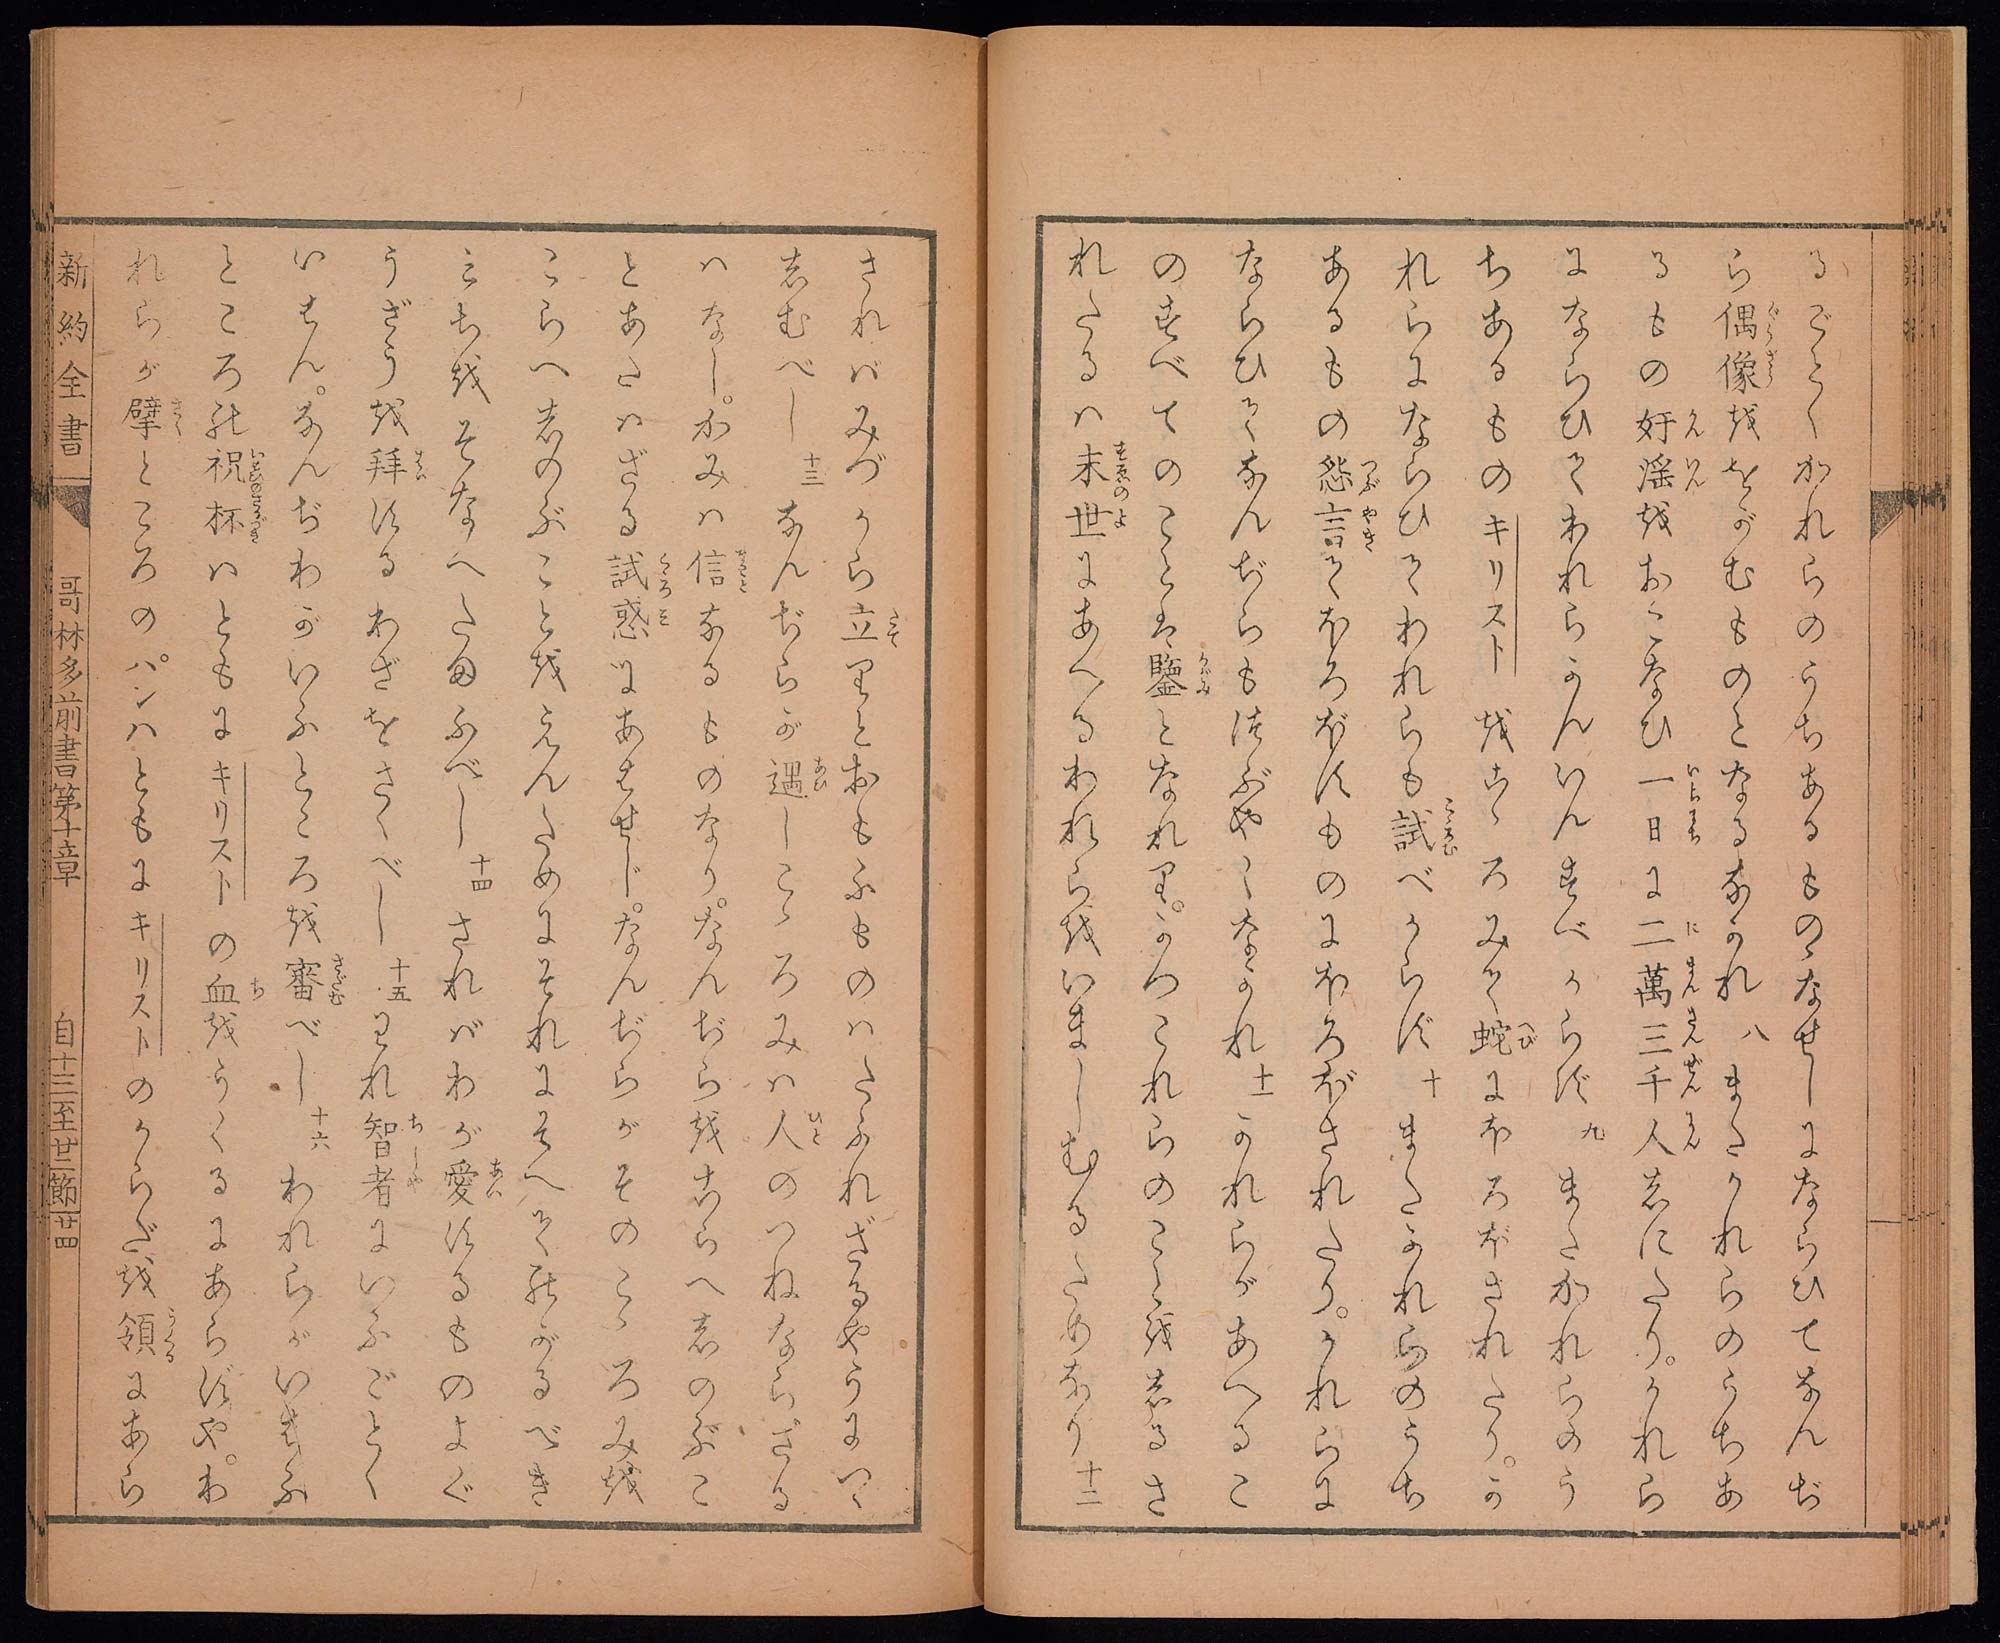 るごとくかれらのうちあるものゝなせしにならひてなんぢ
ら偶像ををがむものとなるなかれ 八 またかれらのうちあ
るもの奸淫をおこなひ一日に二萬三千人志にたり。かれら
にならひてわれらかんいんすべからず 九 またかれらのう
ちあるものキリストをこゝろみて蛇にほろぼされたり。か
れらにならひてわれらも試べからず 十 またかれらのうち
あるもの怨言てほろぼすものにほろぼされたり。かれらに
ならひてなんぢらもつぶやくなかれ 十一 かれらがあへるこ
のすべてのことは鑒となれり。かつこれらのことを志るさ
れたるハ末世にあへるわれらをいましむるためなり 十二
さればみづから立りとおもふものハたふれざるやうにつゝ
志むべし 十三 なんぢらが遇しこゝろみハ人のつねならざる
ハなし。かみハ信なるものなり。なんぢらをこらへ志のぶこ
とあたハざる試惑にあはせじ。なんぢらがそのこゝろみを
こらへ志のぶことをえんためにそれにそへてのがるべき
みちをそなへたまふべし 十四 さればわが愛するものよぐ
うざうを拜するわざをさくべし 十五 われ智者にいふごとく
いはん。なんぢわがいふところを審べし 十六 われらがいはふ
ところの祝杯ハともにキリストの血をうくるにあらずや。わ
れらが擘ところのパンハともにキリストのからだを領にあら
新約全書
哥林多前書第十章
自十三至廿二節
廿四